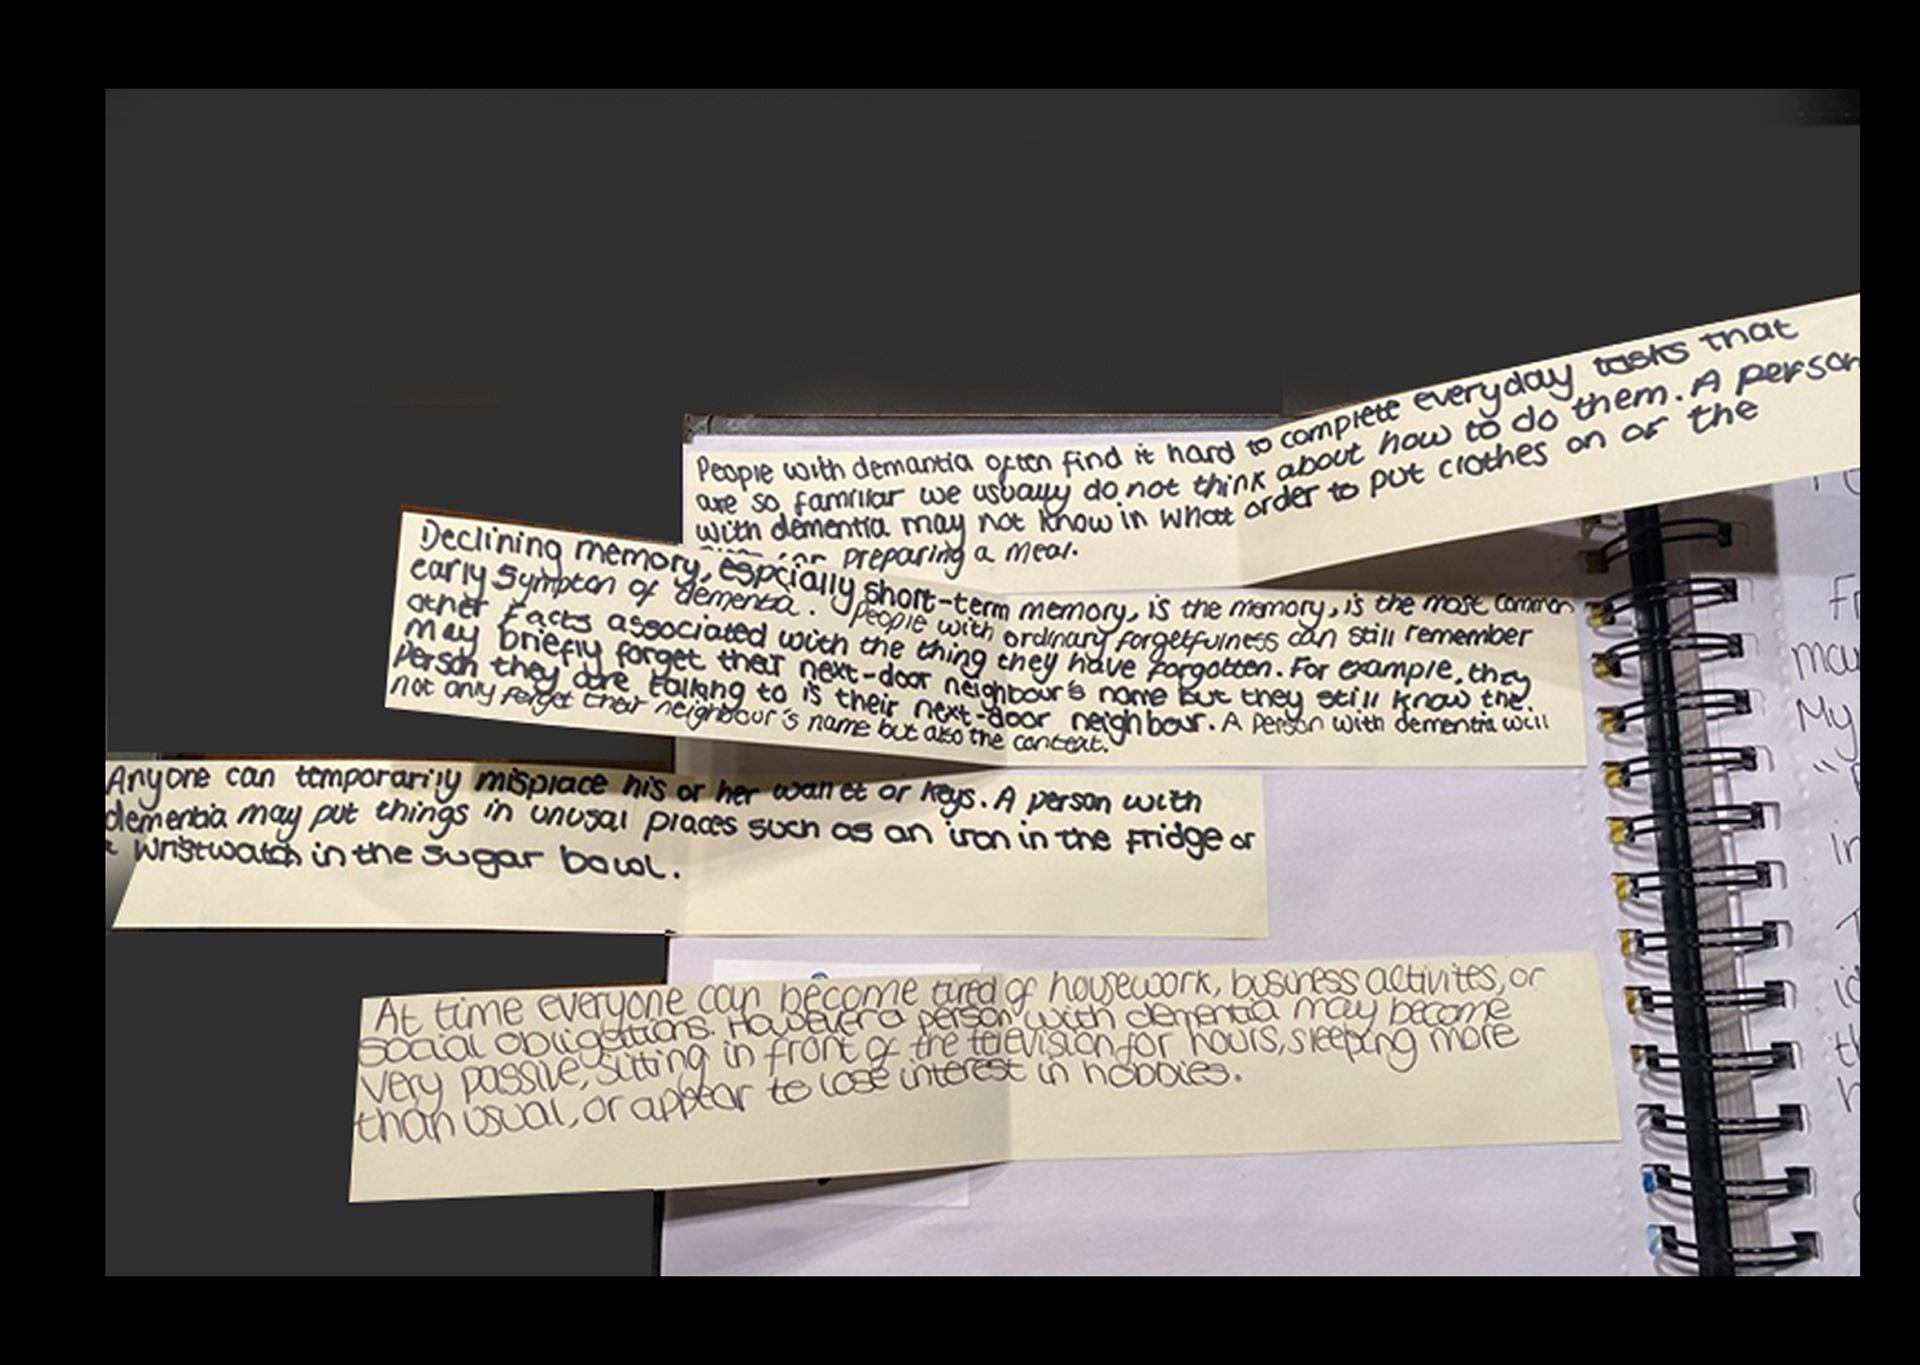 People with demantia often find it hard to complete everyday tasks that
are so familiar we usually do not think about how to do them. A person
with dementia may not know in what order to put clothes on or the
for preparing a meal.
Declining memory, espcially short-term memory, is the memory, is the most common
early sympton of dementia. People with ordinary forgetfulness can still remember
other facts associated with the thing they have forgotten. For example, they
may briefly forget their next-door neighbour's name but they still know the
person they are talking to is their next-door neighbour. A person with dementia will
not only forget their neighbour's name but also the context.
Anyone can temporarily misplace his or her wallet or keys. A person with
dementia may put things in unusal places such as an iron in the fridge or
wristwatch in the sugar bowl.
At time everyone can become tired of housework, business activites, or
social obligations. However a person with dementia may become
very passive, sitting in front of the television for hours, sleeping more
than usual, or appear to lose interest in hobbies.
My